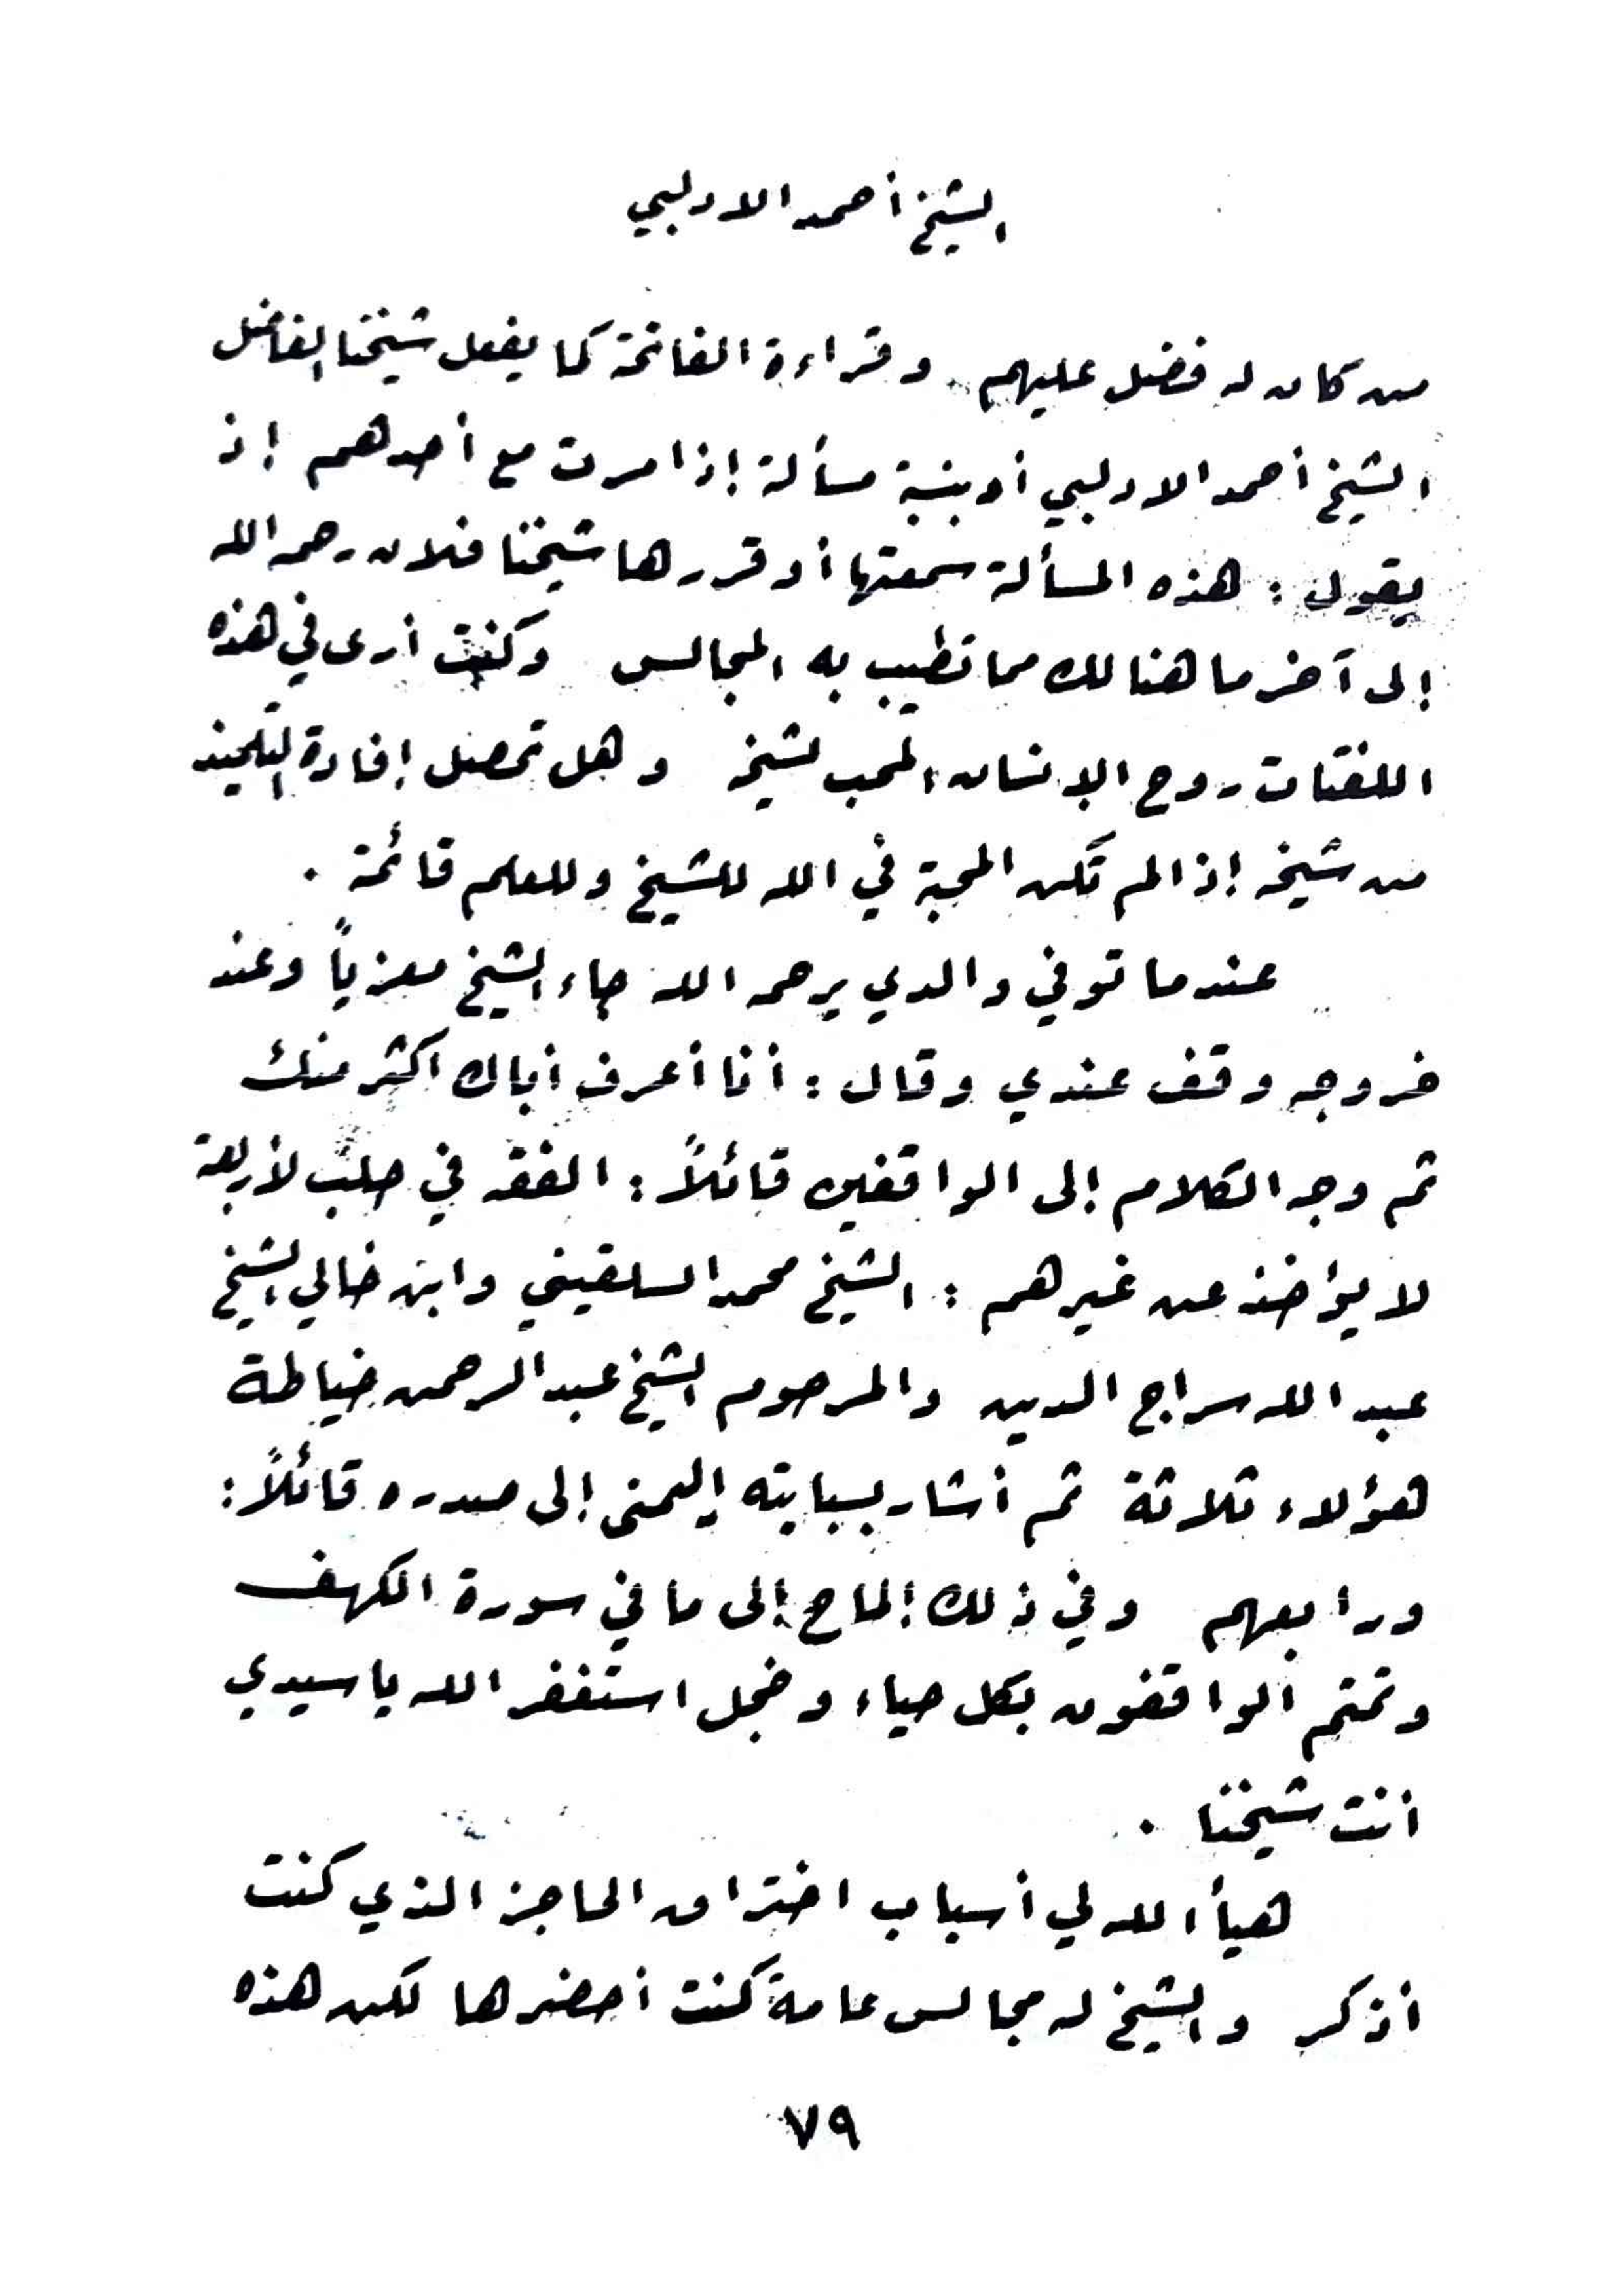 الشيخ أحمد الادلبي
من كان له فضل عليهم . وقراءة الفاتحة كما يفعل شيخنا الفاضل
الشيخ أحمد الادلبي أو بنسبة مسألة إذا مرت مع أحدهم إذ
يقول : هذه المسألة سمعتها أو قررها شيخنا فلان رحمه الله
إلى آخر ما هنالك مما تطيب به المجالس وكنت أرى في هذه
اللفتات روح الإنسان المحب لشيخه وهل تحصل إفادة التلميذ
من شيخه إذا لم تكن المحبة في الله للشيخ وللعلم قائمة .
عندما توفي والدي يرحمه الله جاء الشيخ معزياً وعند
خروجه وقف عندي وقال : أنا أعرف أباك اكثر منك
ثم وجه الكلام إلى الواقفين قائلاً : الفقه في حلب لأربعة
لا يؤخذ عن غيرهم : الشيخ محمد السلقيني وابن خالي الشيخ
عبد الله سراج الدين والمرحوم الشيخ عبد الرحمن خياطة
هؤلاء ثلاثة ثم أشار بسبابته اليمنى إلى صدره قائلاً :
ورابعهم وفي ذلك إلماح إلى ما في سورة الكهف
وتمتم الواقفون بكل حياء وخجل استغفر الله يا سيدي
أنت شيخنا .
هيأ الله لي أسباب اختراق الحاجز الذي كنت
أذكر والشيخ له مجالس عامة كنت أحضرها لكن هذه
٧٩